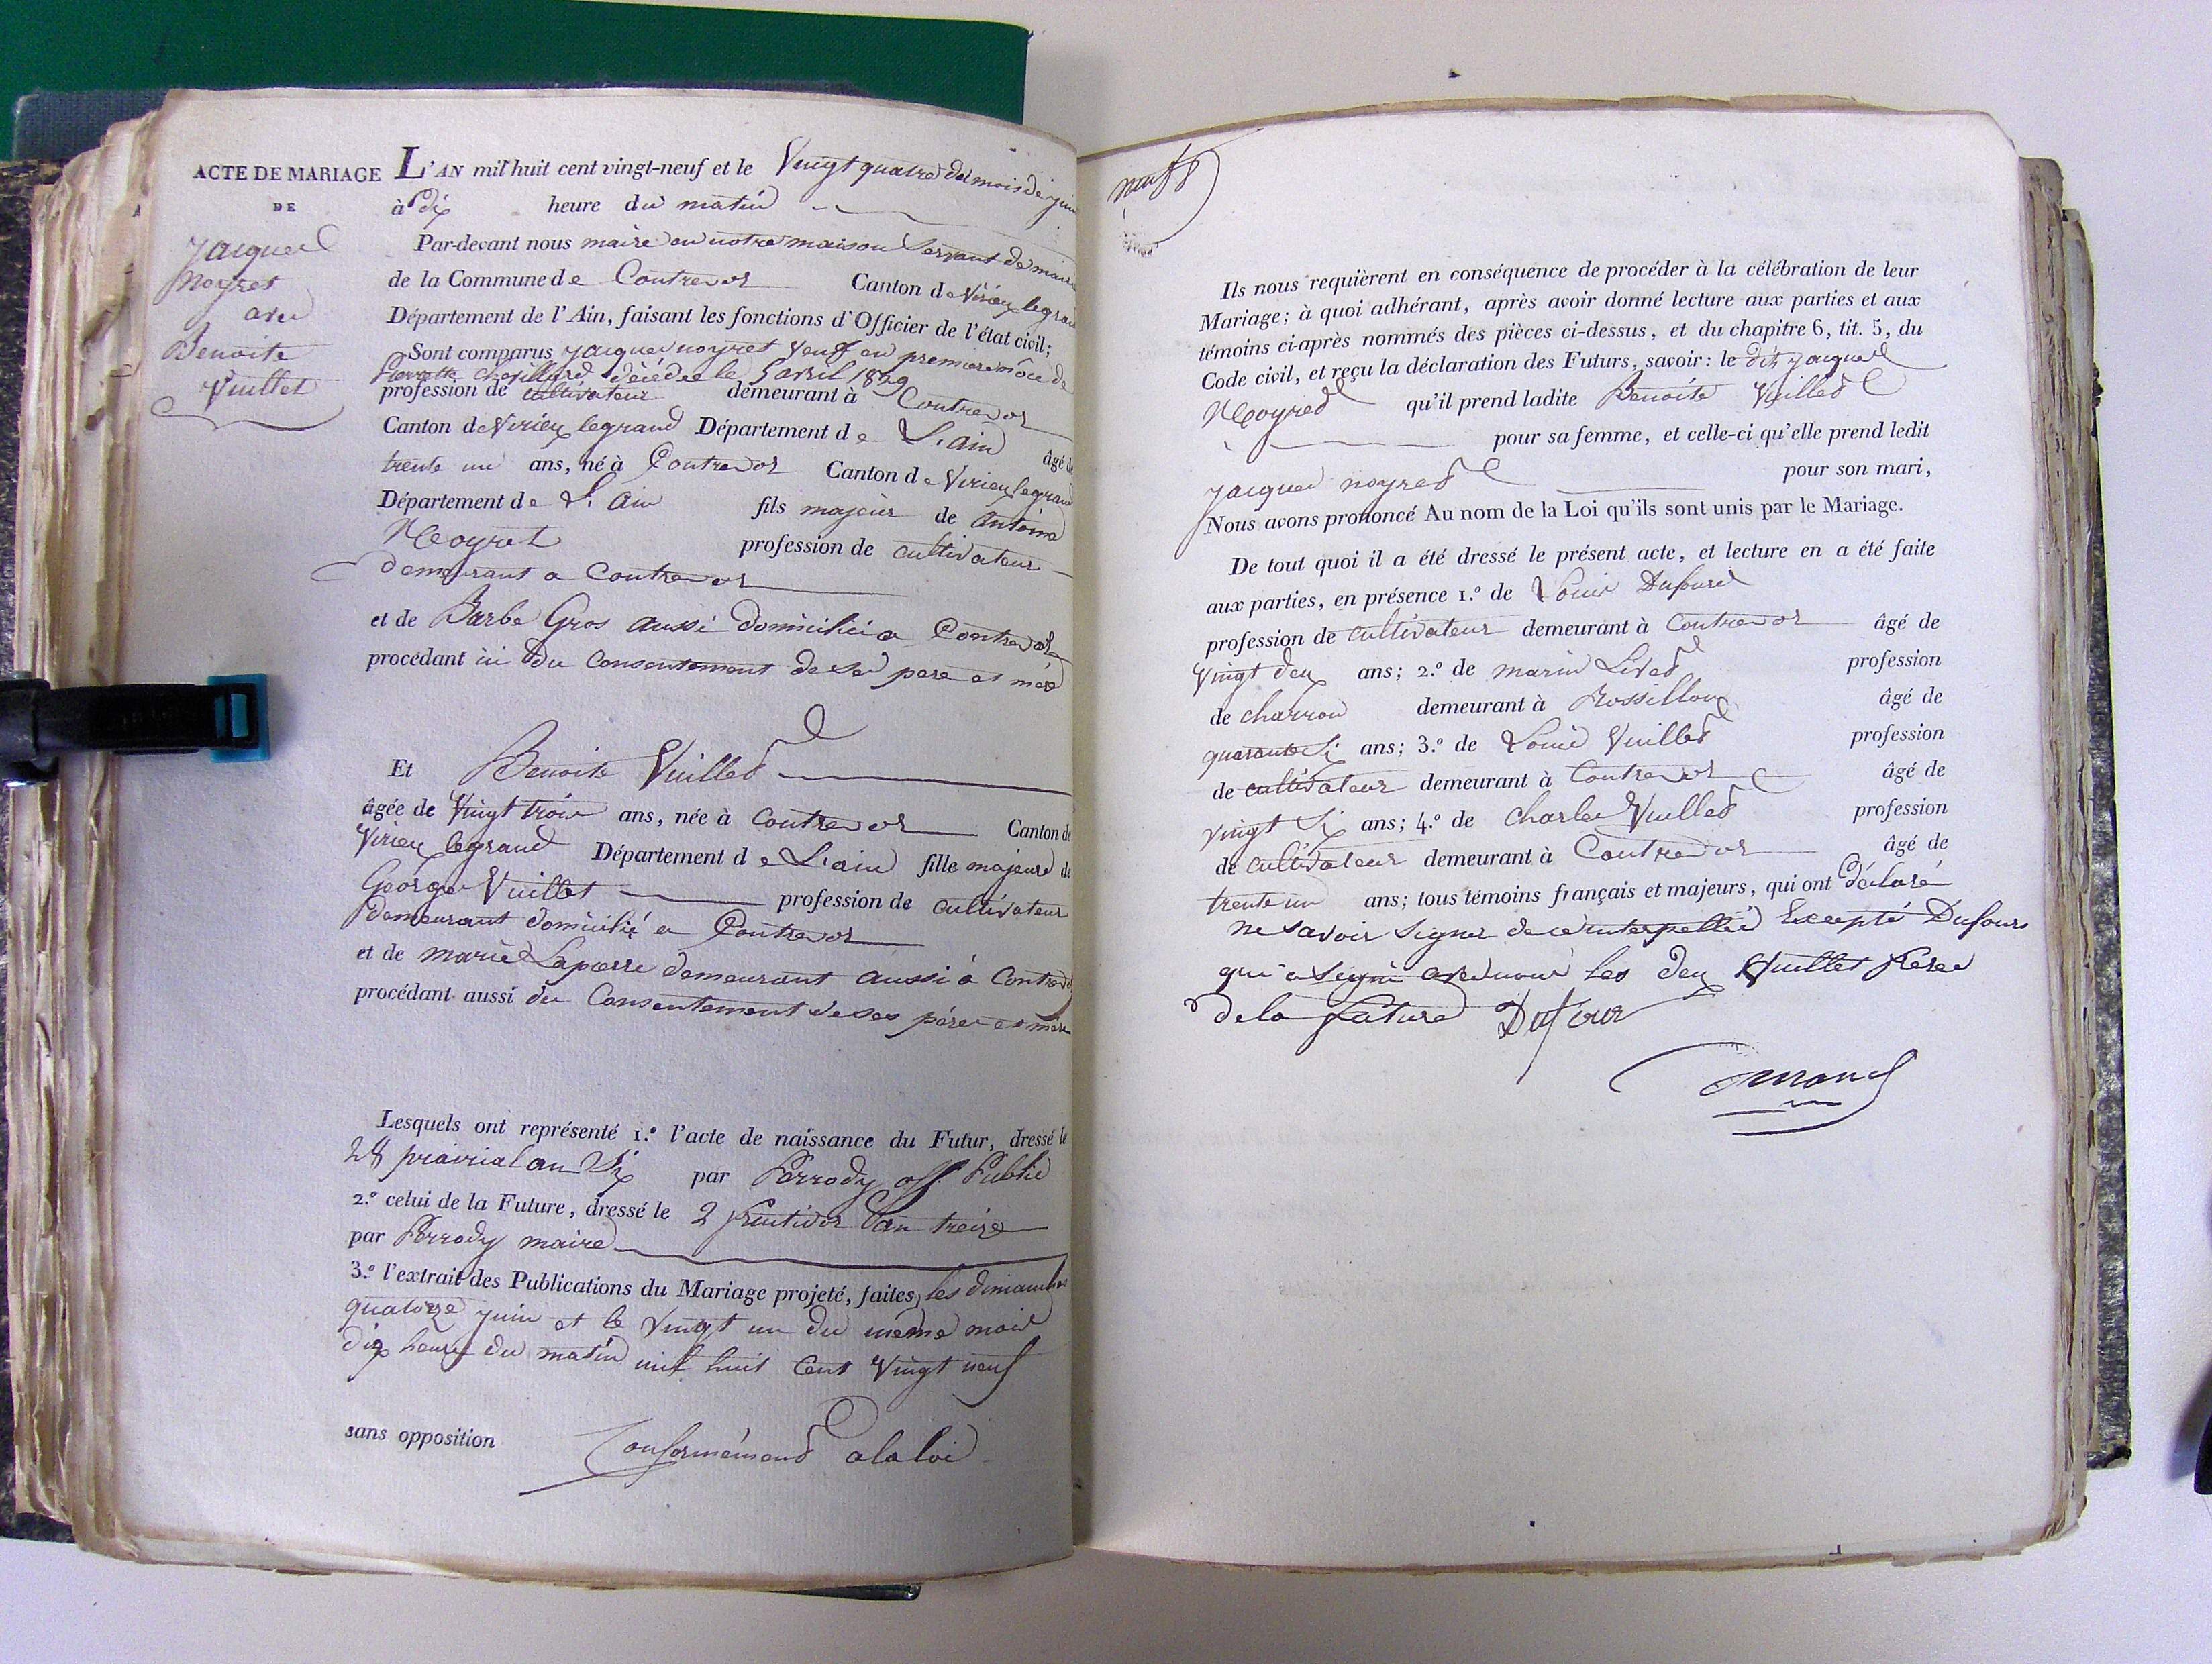 ACTE DE MARIAGE
DE
jacques
Noyret
avec
Benoite
Vuillet
L'AN mil huit cent vingt-neuf et le Vingt quatre du mois de juin
à dix heure du matin
Par-devant nous maire en notre maison Servant de mairie
de la Commune de Contrevoz Canton de Virieu legrand
Département de l'Ain, faisant les fonctions d'Officier de l'état civil;
Sont comparus jacques noyret veuf en premiere nôce de
Pierrette décédée le 5 avril 1829
profession de cultivateur demeurant à Contrevoz
Canton de Virieu legrand Département de L'ain âgé de
trente un ans, né à Contrevoz Canton de Virieu legrand
Département de L'ain fils majeur de Antoine
Noyret profession de cultivateur
demeurant a Contrevoz
et de Barbe Gros aussi domicilié a Contrevoz
procédant ici du Consentement de ses pere et mere
Et Benoite Vuillet
âgée de Vingt trois ans, née à Contrevoz Canton de
Virieu legrand Département de L'ain fille majeure de
George Vuillet profession de cultivateur
demeurant domicilié a Contrevoz
et de marie Lapierre demeurant aussi à Contrevoz
procédant aussi du Consentement de ses père et mere
Lesquels ont représenté 1.º l'acte de naissance du Futur, dressé le
28 prairial an Six par Perrody off. Public
2.º celui de la Future, dressé le 2 fructidor an treize
par Perrody maire
3.º l'extrait des Publications du Mariage projeté, faites les dimanches
quatorze juin et le vingt un du même mois
dix heures du matin mil huit Cent Vingt neuf
sans opposition Conformément a la loi
neuf
Ils nous requièrent en conséquence de procéder à la célébration de leur
Mariage; à quoi adhérant, après avoir donné lecture aux parties et aux
témoins ci-après nommés des pièces ci-dessus, et du chapitre 6, tit. 5, du
Code civil, et reçu la déclaration des Futurs, savoir: le dit jacques
Noyret qu'il prend ladite Benoite Vuillet
pour sa femme, et celle-ci qu'elle prend ledit
jacques noyret pour son mari,
Nous avons prononcé Au nom de la Loi qu'ils sont unis par le Mariage.
De tout quoi il a été dressé le présent acte, et lecture en a été faite
aux parties, en présence 1.º de Louis Dufour
profession de cultivateur demeurant à Contrevoz âgé de
vingt deux ans; 2.º de marin Livet profession
de charron demeurant à Rossillon âgé de
quarante Six ans; 3.º de Louis Vuillet profession
de cultivateur demeurant à Contrevoz âgé de
vingt Six ans; 4.º de Charle Vuillet profession
de cultivateur demeurant à Contrevoz âgé de
trente un ans; tous témoins français et majeurs, qui ont déclaré
ne savoir signer de ce interpellés Excepté Dufour
qui a signé avec nous les deux Vuillet frere
de la future Dufour